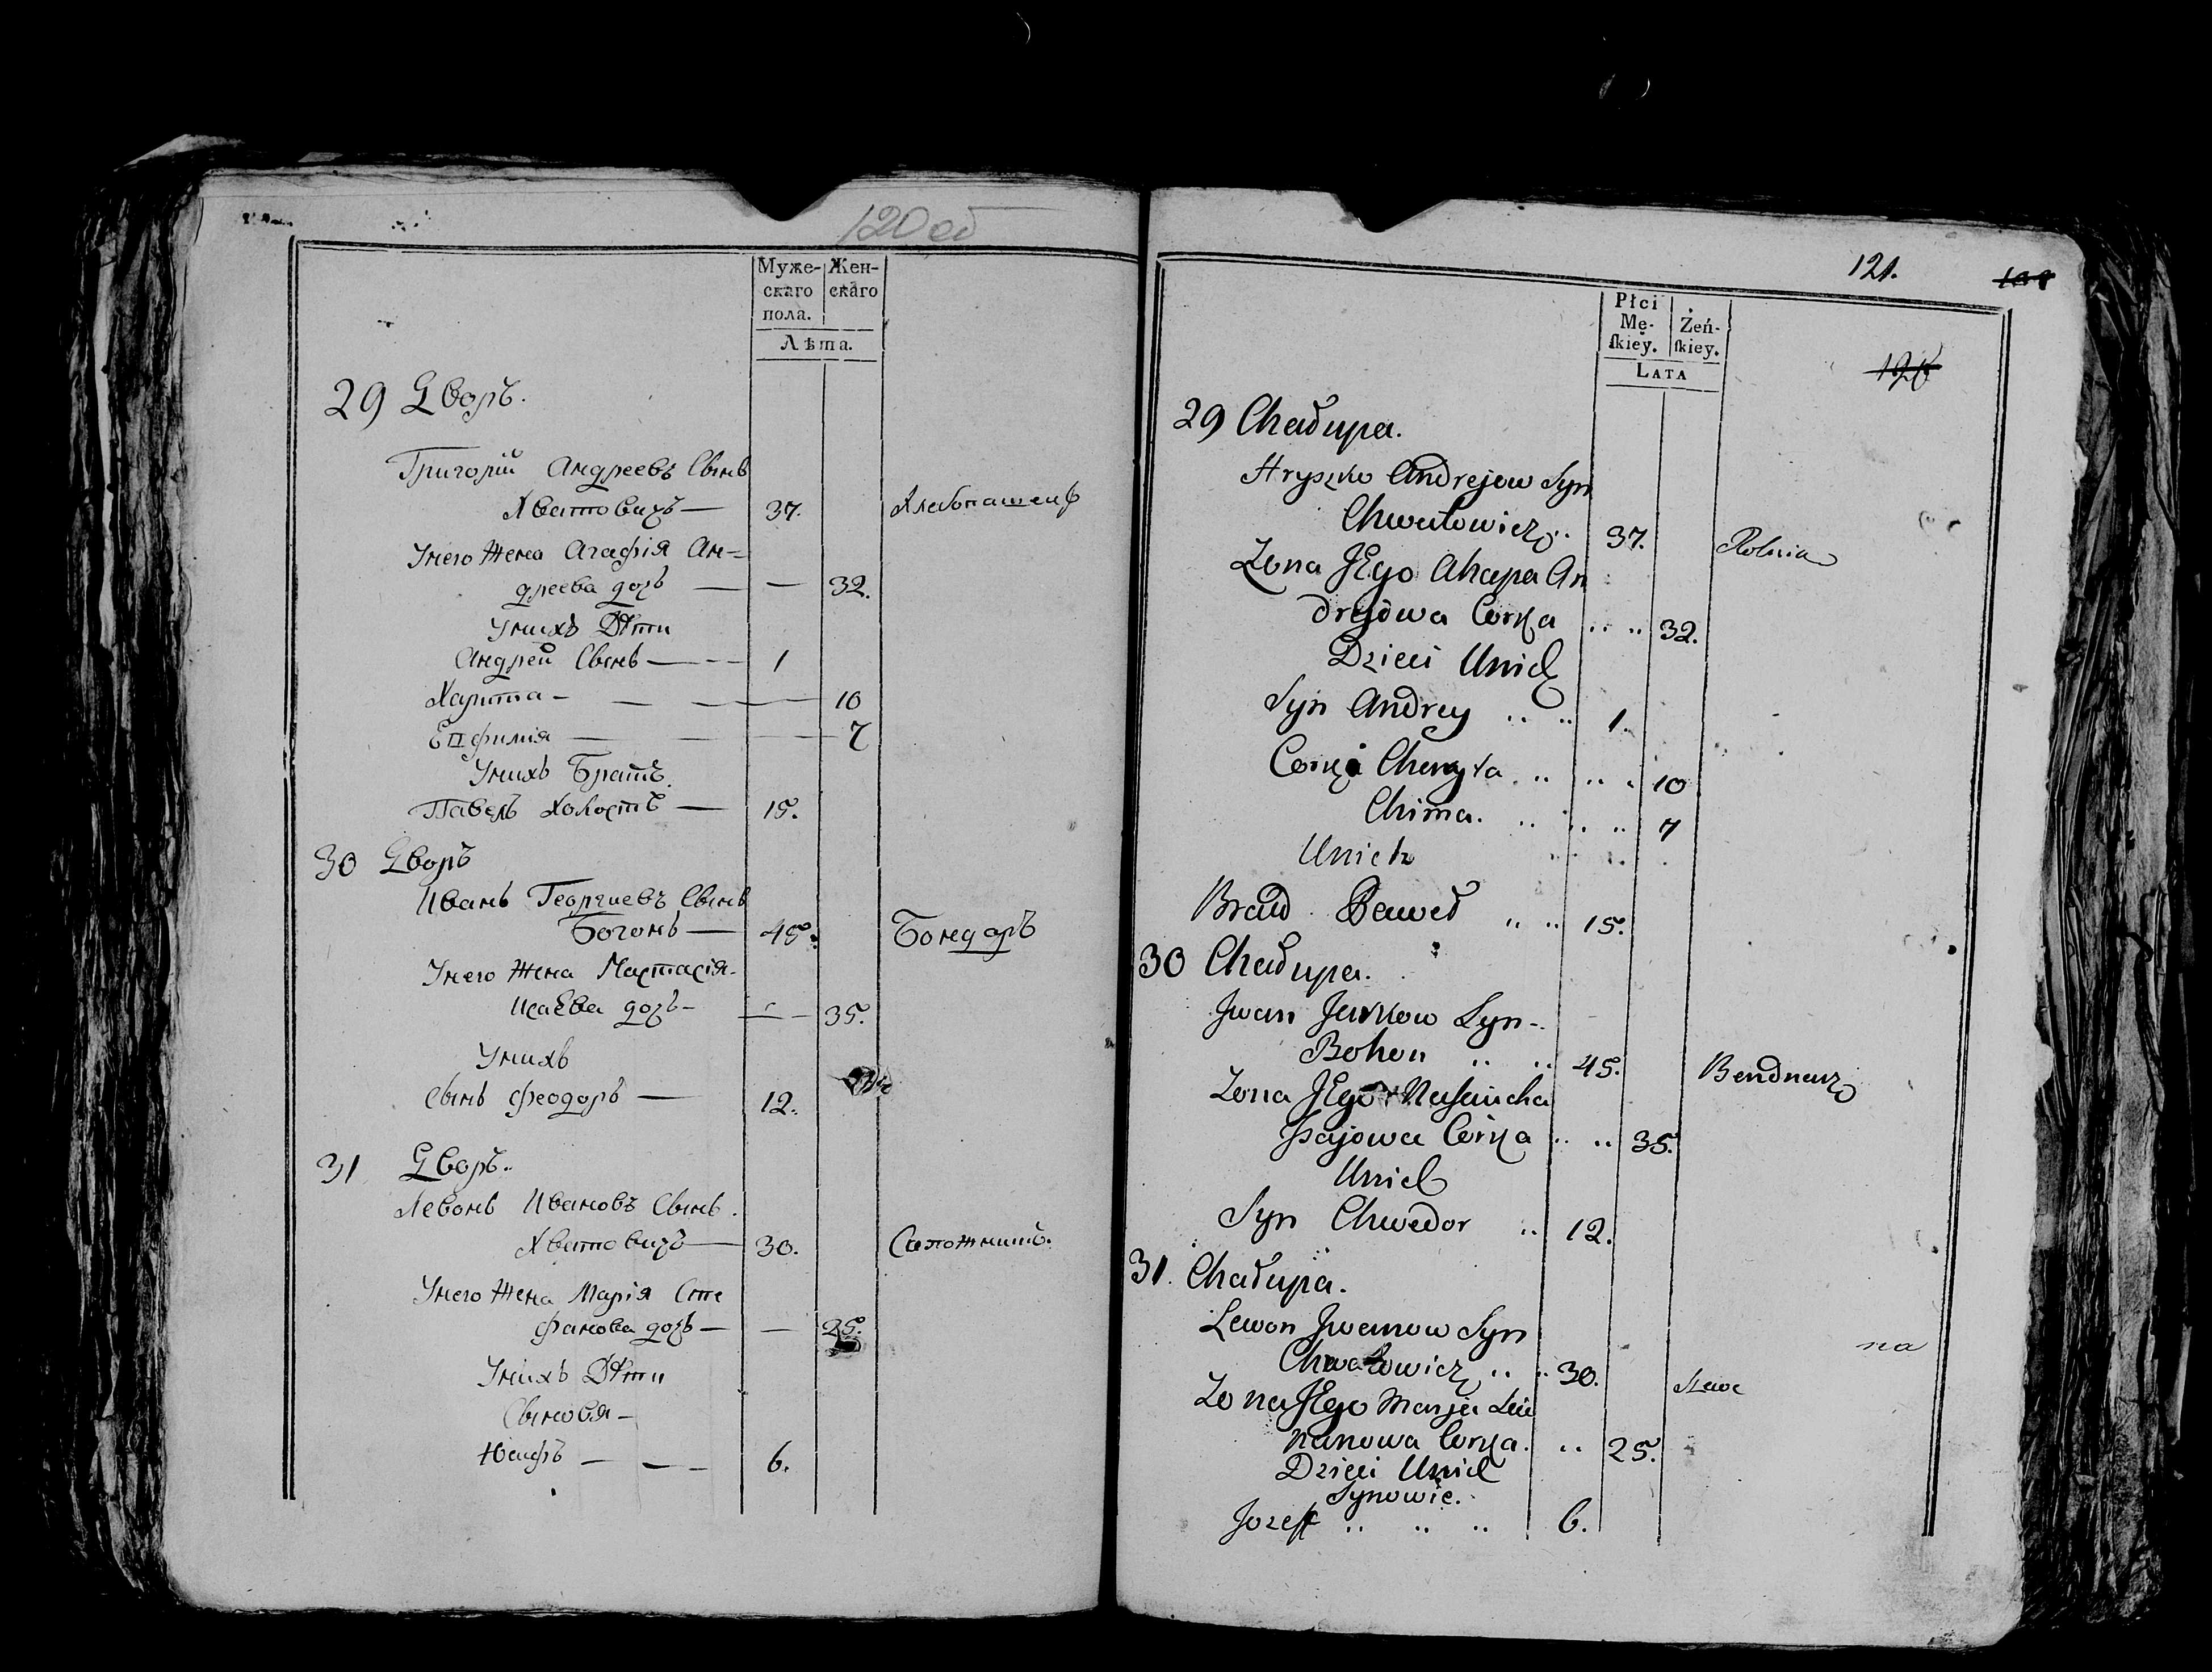 120 об
Муже-
скаго
пола.
Жен-
скаго
Лѣта.
29 Дворъ.
Григорій Андреевъ Сынъ
Хватовичъ — 37. Хлебпашецъ
Унего Жена Агафія Ан-
дреева дочь — — 32.
Унихъ Дѣти
Андрей Сынъ — 1
Харита — 10
Евфимія — 7
Унихъ Братъ
Павелъ Холостъ — 15.
30 Дворъ
Иванъ Георгиевъ Сынъ
Богонъ — 45. Бондаръ
Унего Жена Настасія
Исаева дочь — 35.
Унихъ
Сынъ Феодоръ — 12.
31 Дворъ.
Левонъ Ивановъ Сынъ.
Хватовичъ — 30. Сапожникъ.
Унего Жена Марія Сте
фанова дочь — — 25.
Унихъ Дѣти
Сыновья —
Юсифъ — — — 6.
121.
Płci
Mę-
skiey.
Żeń-
skiey.
LATA
126
29 Chałupa.
Hryszko Andrejow Syn
Chwatowicz .. 37. Rolnia
Zona JEgo Ahapa An
drejowa Corka .. .. 32.
Dzieci Unich
Syn Andrey .. .. 1.
Corka Charyta .. .. . 10
Chima. .. .. .. 7
Unich
Brad Paweł .. .. 15.
30 Chałupa.
Jwan Jurkow Syn -
Bohon .. .. 45. Bendnarz
Zona JEgo Nastaicha
Jsajowa Corka .. .. 35.
Unich
Syn Chwedor .. 12.
31. Chałupa.
Lewon Jwanow Syn
Chwatowicz .. .. 30. Szwc
na
Zona JEgo Marja
nanowa Corka. .. 25.
Dzieci Unich
Synowie.
Jozeff .. .. .. 6.